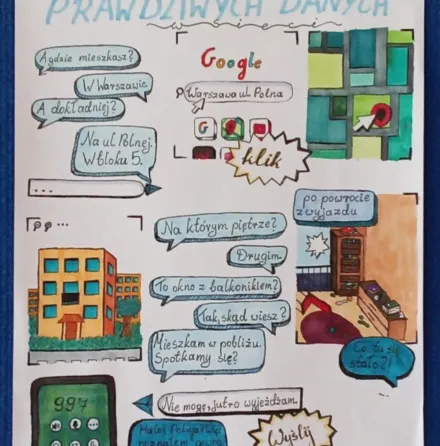 PRAWDZIWYCH DANYCH
w sieci
A gdzie mieszkasz?
W Warszawie
A dokładniej?
Na ul Polnej.
W bloku 5.
...
Google
Warszawa ul Polna
G
klik
...
Na którym piętrze?
Drugim.
To okno z balkonikiem?
Tak, skąd wiesz?
Mieszkam w pobliżu.
Spotkamy się?
po powrocie
z wyjazdu
Co tu się
stało?!
997
Nie mogę, jutro wyjeżdżam.
Wyślij